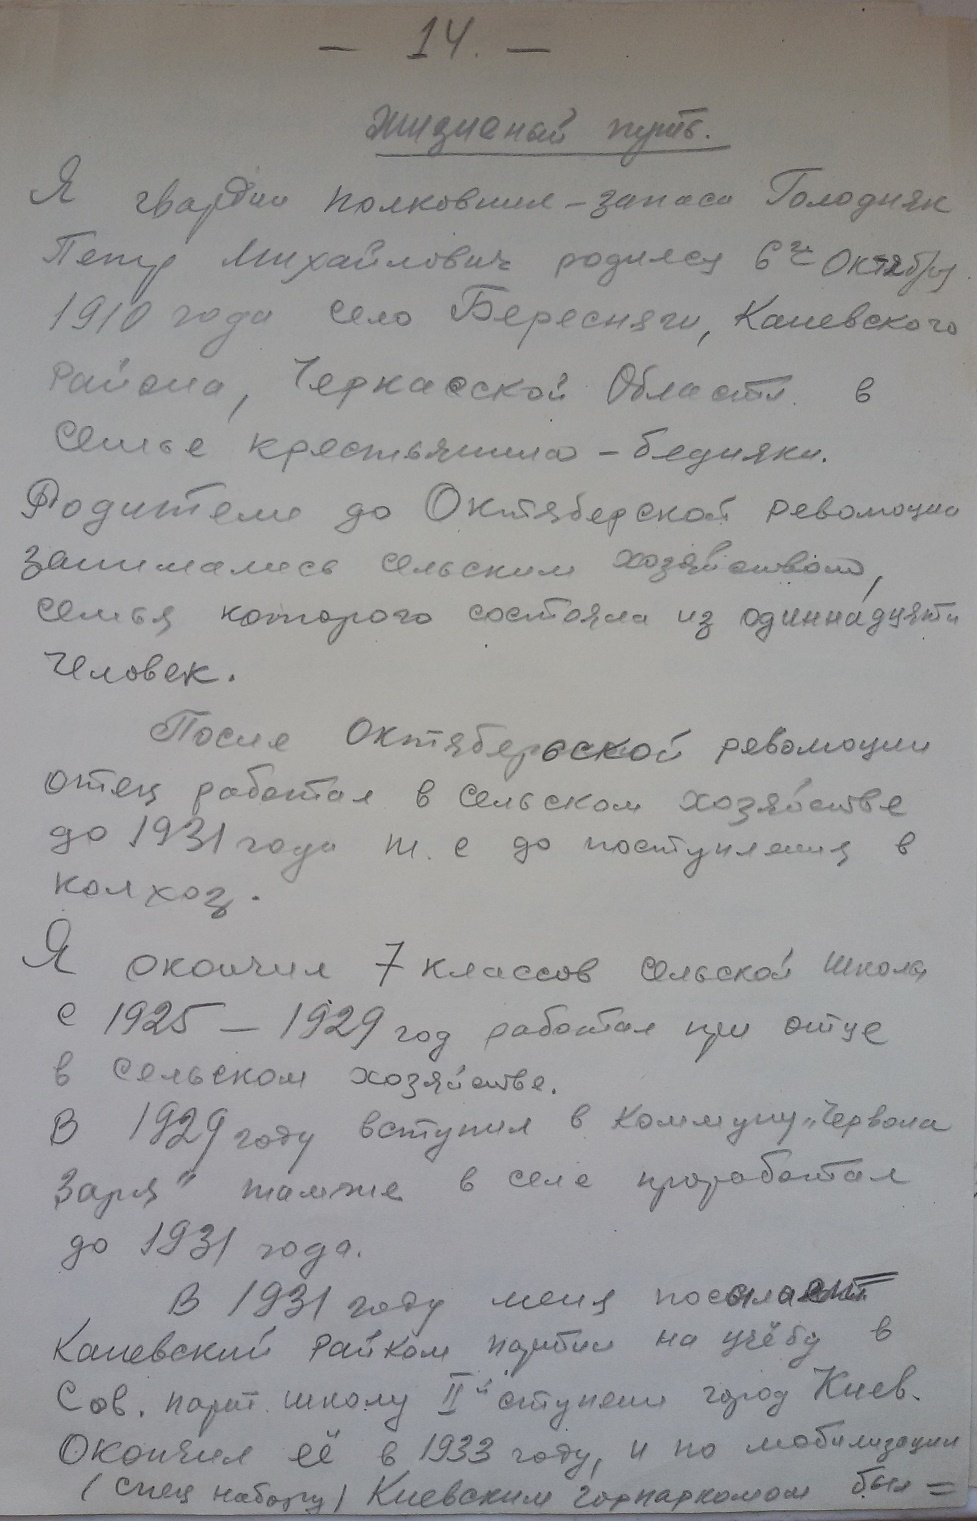 — 14. —
Жизненый путь.
Я гвардии полковник-запаса Голодняк
Петр Михайлович родился 6го Октября
1910 года село Бересняги, Каневского
района, Черкасской Области в
семье крестьянина-бедняка.
Родители до Октябьрской революции
занимались сельским хозяйством,
семья которого состояла из одиннадцяти
человек.
После Октябьрьской революции
отец работал в сельском хозяйстве
до 1931 года т. е до поступления в
колхоз.
Я окончил 7 классов сельской школы
с 1925 — 1929 год работал при отце
в сельском хозяйстве.
В 1929 году вступил в коммуну „Червона
Заря" там-же в селе проработал
до 1931 года.
В 1931 году меня посылает
Каневский райком партии на учёбу в
Сов. парт. школу IIй ступени город Киев.
Окончил её в 1933 году, и по мобилизации
(спец набору) Киевским горпаркомом был =